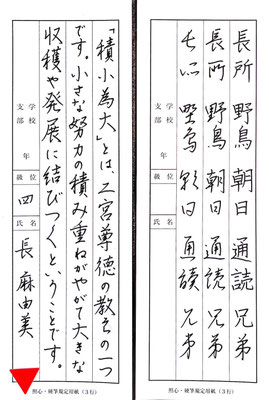 長所 野鳥 朝日 通読 兄弟
長所 野鳥 朝日 通読 兄弟
長所 野鳥 朝日 通讀 兄弟
学校
支部
年 級位 氏名
照心・硬筆規定用紙（3行）
「積小為大」とは、二宮尊徳の教えの一つ
です。小さな努力の積み重ねがやがて大きな
収穫や発展に結びつくということです。
学校
支部
年 級位 四 氏名 長麻由美
照心・硬筆規定用紙（3行）